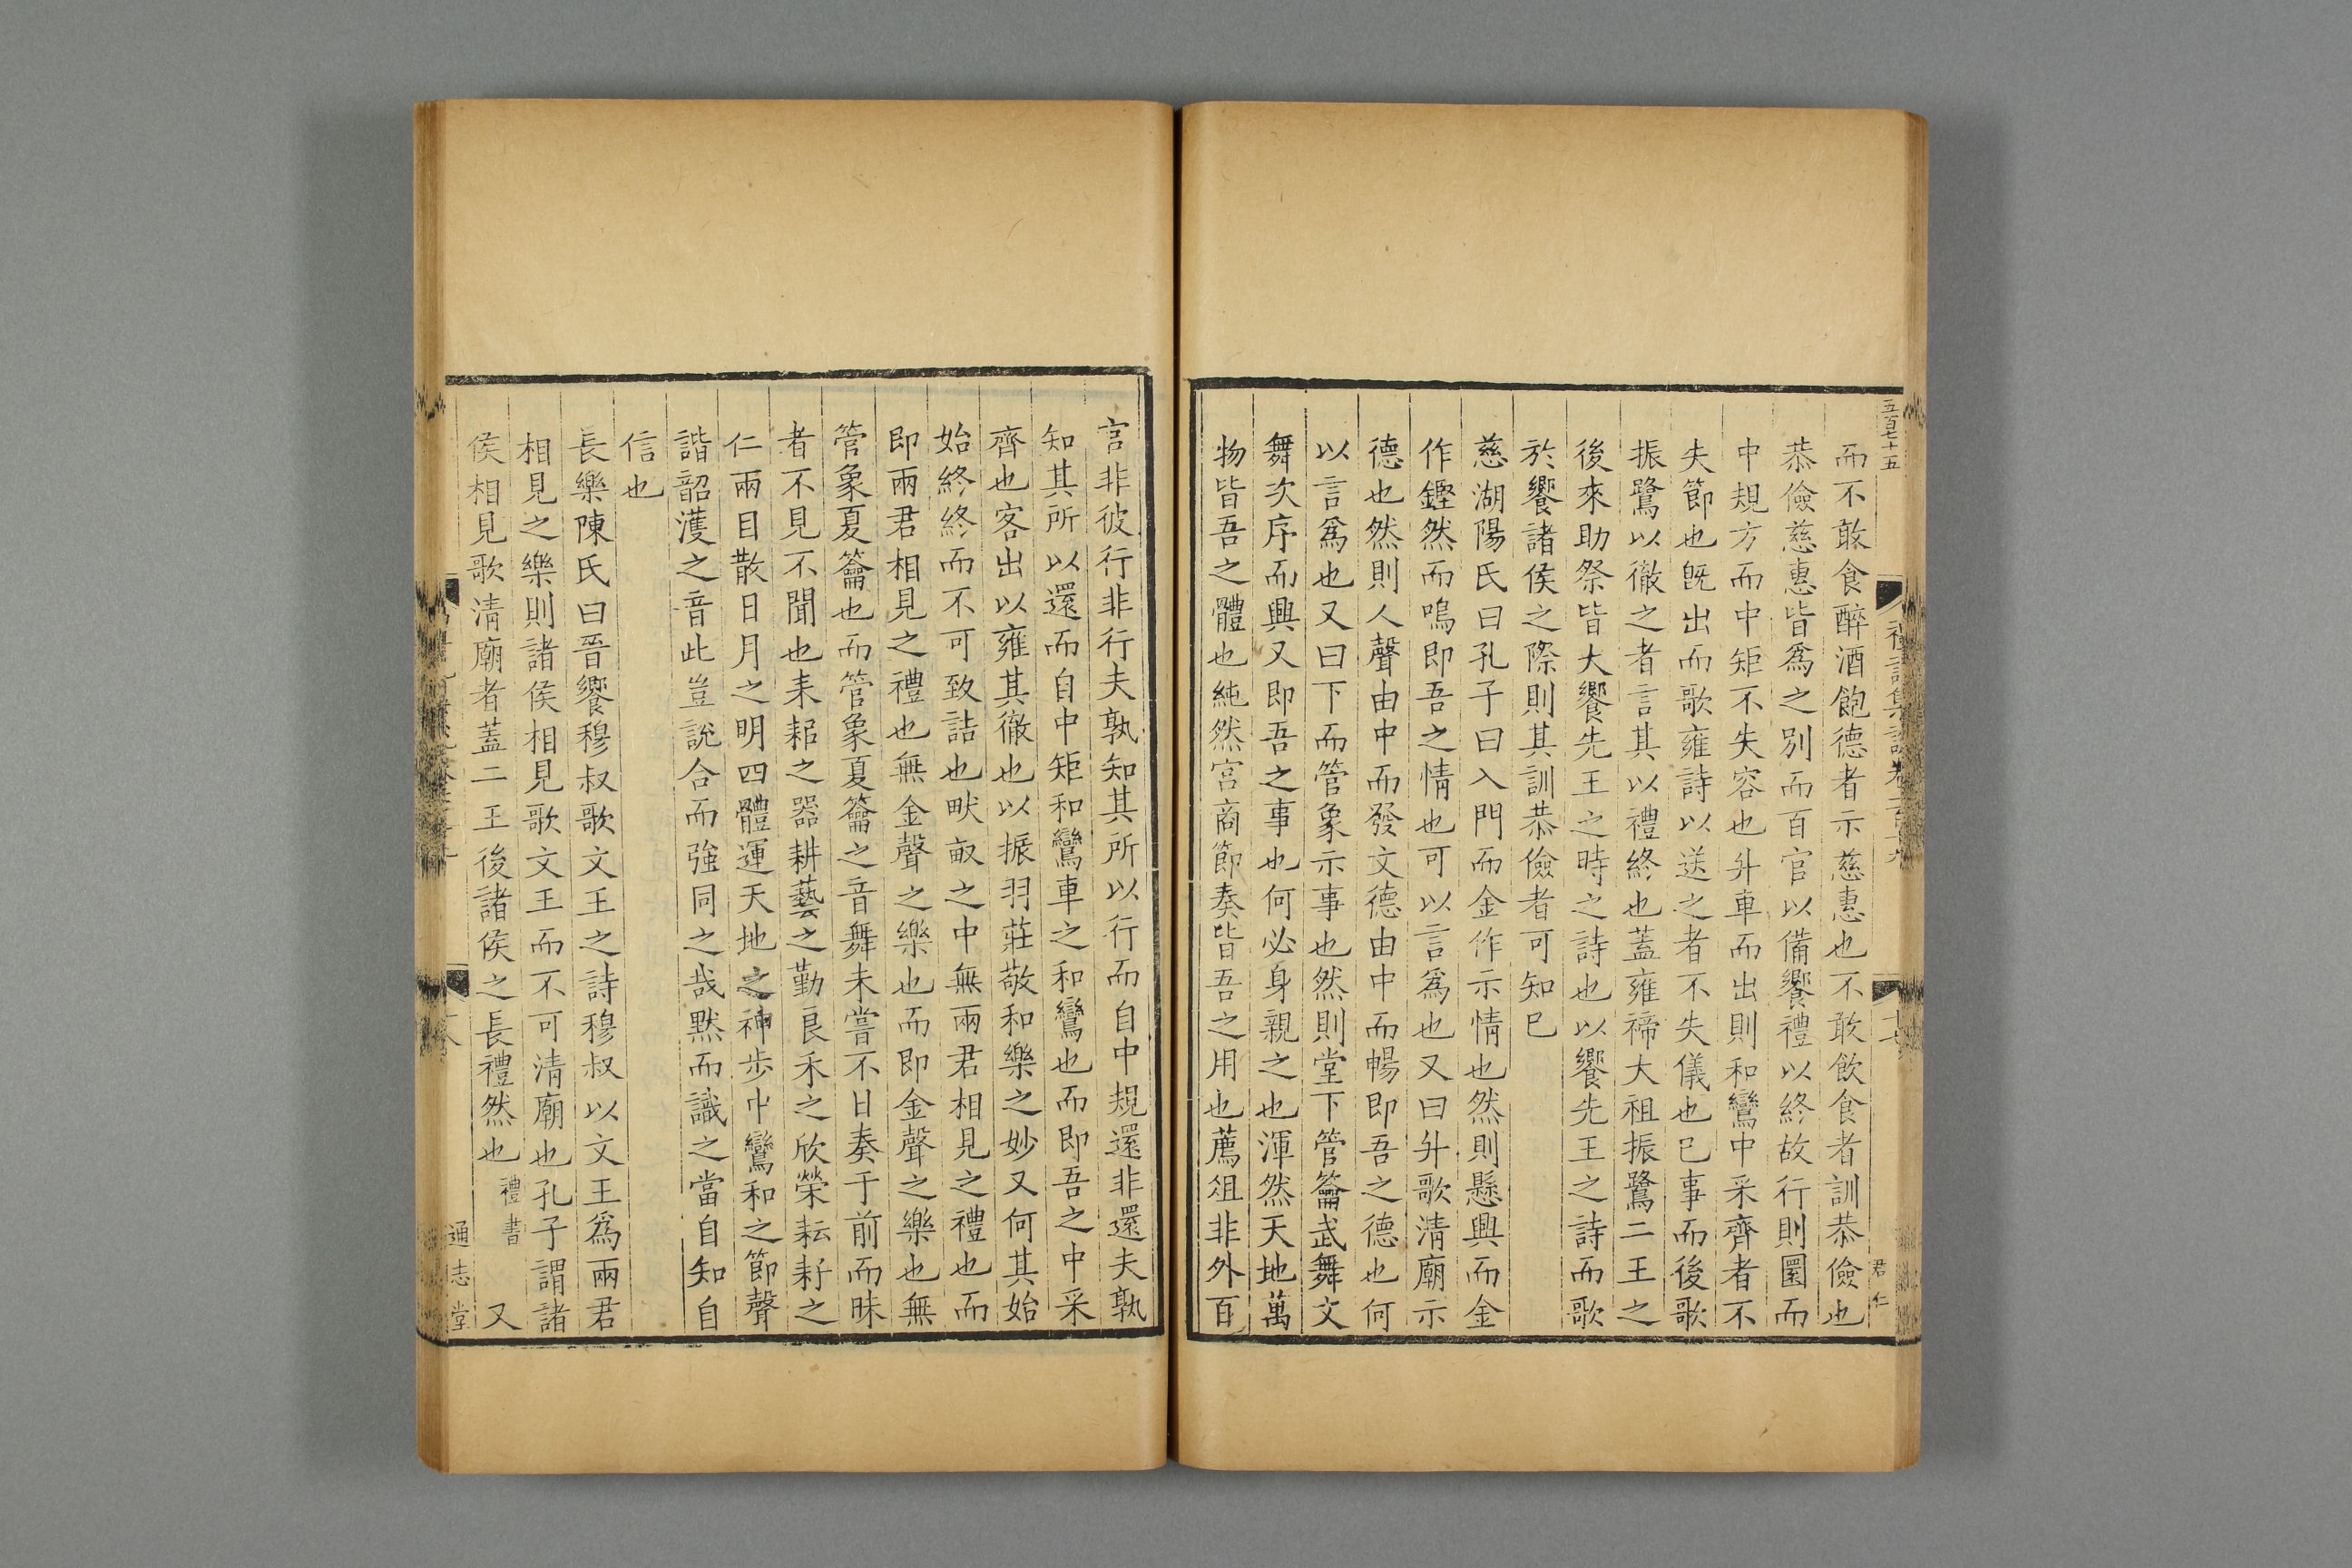 五百七十五
君仁
而不敢食醉酒飽德者示慈惠也不敢飲食者訓恭儉也
恭儉慈惠皆爲之別而百官以備饗禮以終故行則圜而
中規方而中矩不失容也升車而出則和鸞中采齊者不
夫節也旣出而歌雍詩以送之者不失儀也已事而後歌
振鷺以徹之者言其以禮終也蓋雍禘大祖振鷺二王之
後來助祭皆大饗先王之時之詩也以饗先王之詩而歌
於饗諸侯之際則其訓恭儉者可知已
慈湖陽氏曰孔子曰入門而金作示情也然則懸興而金
作鏗然而鳴即吾之情也可以言爲也又曰升歌淸廟示
德也然則人聲由中而發文德由中而暢即吾之德也何
以言爲也又曰下而管象示事也然則堂下管籥武舞文
舞次序而興又即吾之事也何必身親之也渾然天地萬
物皆吾之體也純然宮商節奏皆吾之用也薦俎非外百
官非彼行非行夫孰知其所以行而自中規還非還夫孰
知其所以還而自中矩和鸞車之和鸞也而即吾之中采
齊也客出以雍其徹也以振羽莊敬和樂之妙又何其始
始終終而不可致詰也畎畝之中無兩君相見之禮也而
即兩君相見之禮也無金聲之樂也而即金聲之樂也無
管象夏籥也而管象夏籥之音舞未嘗不日奏于前而昧
者不見不聞也耒耜之器耕藝之勤良禾之欣榮耘耔之
仁兩目散日月之明四體運天地之神步中鸞和之節聲
諧韶濩之音此豈說合而強同之哉黙而識之當自知自
信也
長樂陳氏曰晉饗穆叔歌文王之詩穆叔以文王爲兩君
相見之樂則諸侯相見歌文王而不可淸廟也孔子謂諸
侯相見歌淸廟者蓋二王後諸侯之長禮然也禮書 又
通志堂